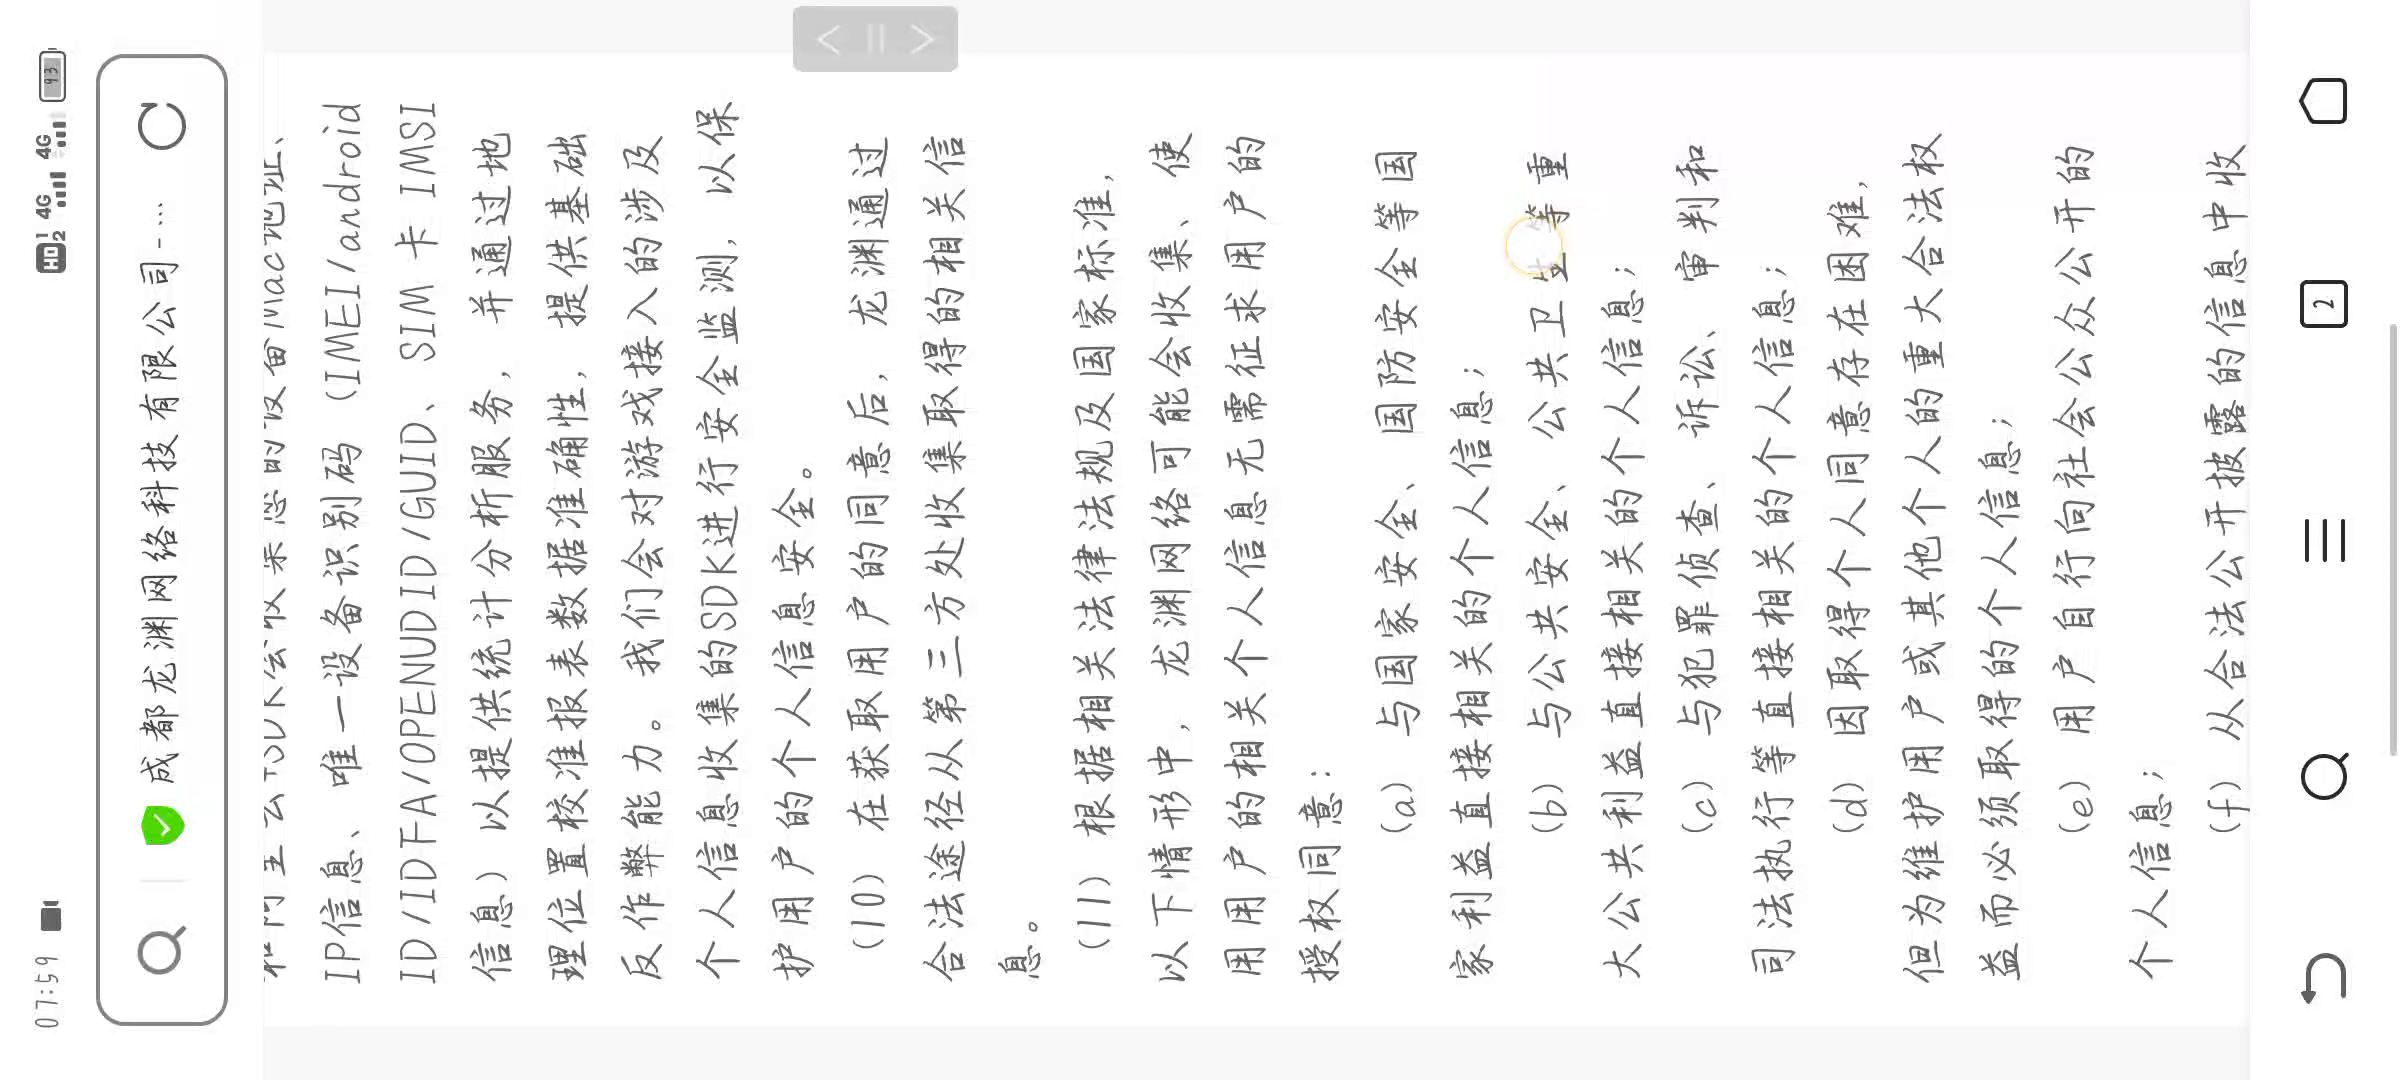 07:59
HD 1 2 4G 4G 93
成都龙渊网络科技有限公司-...
IP信息、唯一设备识别码（IMEI/android
ID/IDFA/OPENUDID/GUID、SIM 卡 IMSI
信息）以提供统计分析服务，并通过地
理位置校准报表数据准确性，提供基础
反作弊能力。我们会对游戏接入的涉及
个人信息收集的SDK进行安全监测，以保
护用户的个人信息安全。
（10）在获取用户的同意后，龙渊通过
合法途径从第三方处收集取得的相关信
息。
（11）根据相关法律法规及国家标准，
以下情形中，龙渊网络可能会收集、使
用用户的相关个人信息无需征求用户的
授权同意：
（a）与国家安全、国防安全等国
家利益直接相关的个人信息；
（b）与公共安全、公共卫生等重
大公共利益直接相关的个人信息；
（c）与犯罪侦查、诉讼、审判和
司法执行等直接相关的个人信息；
（d）因取得个人同意存在困难，
但为维护用户或其他个人的重大合法权
益而必须取得的个人信息；
（e）用户自行向社会公众公开的
个人信息；
（f）从合法公开披露的信息中收
2